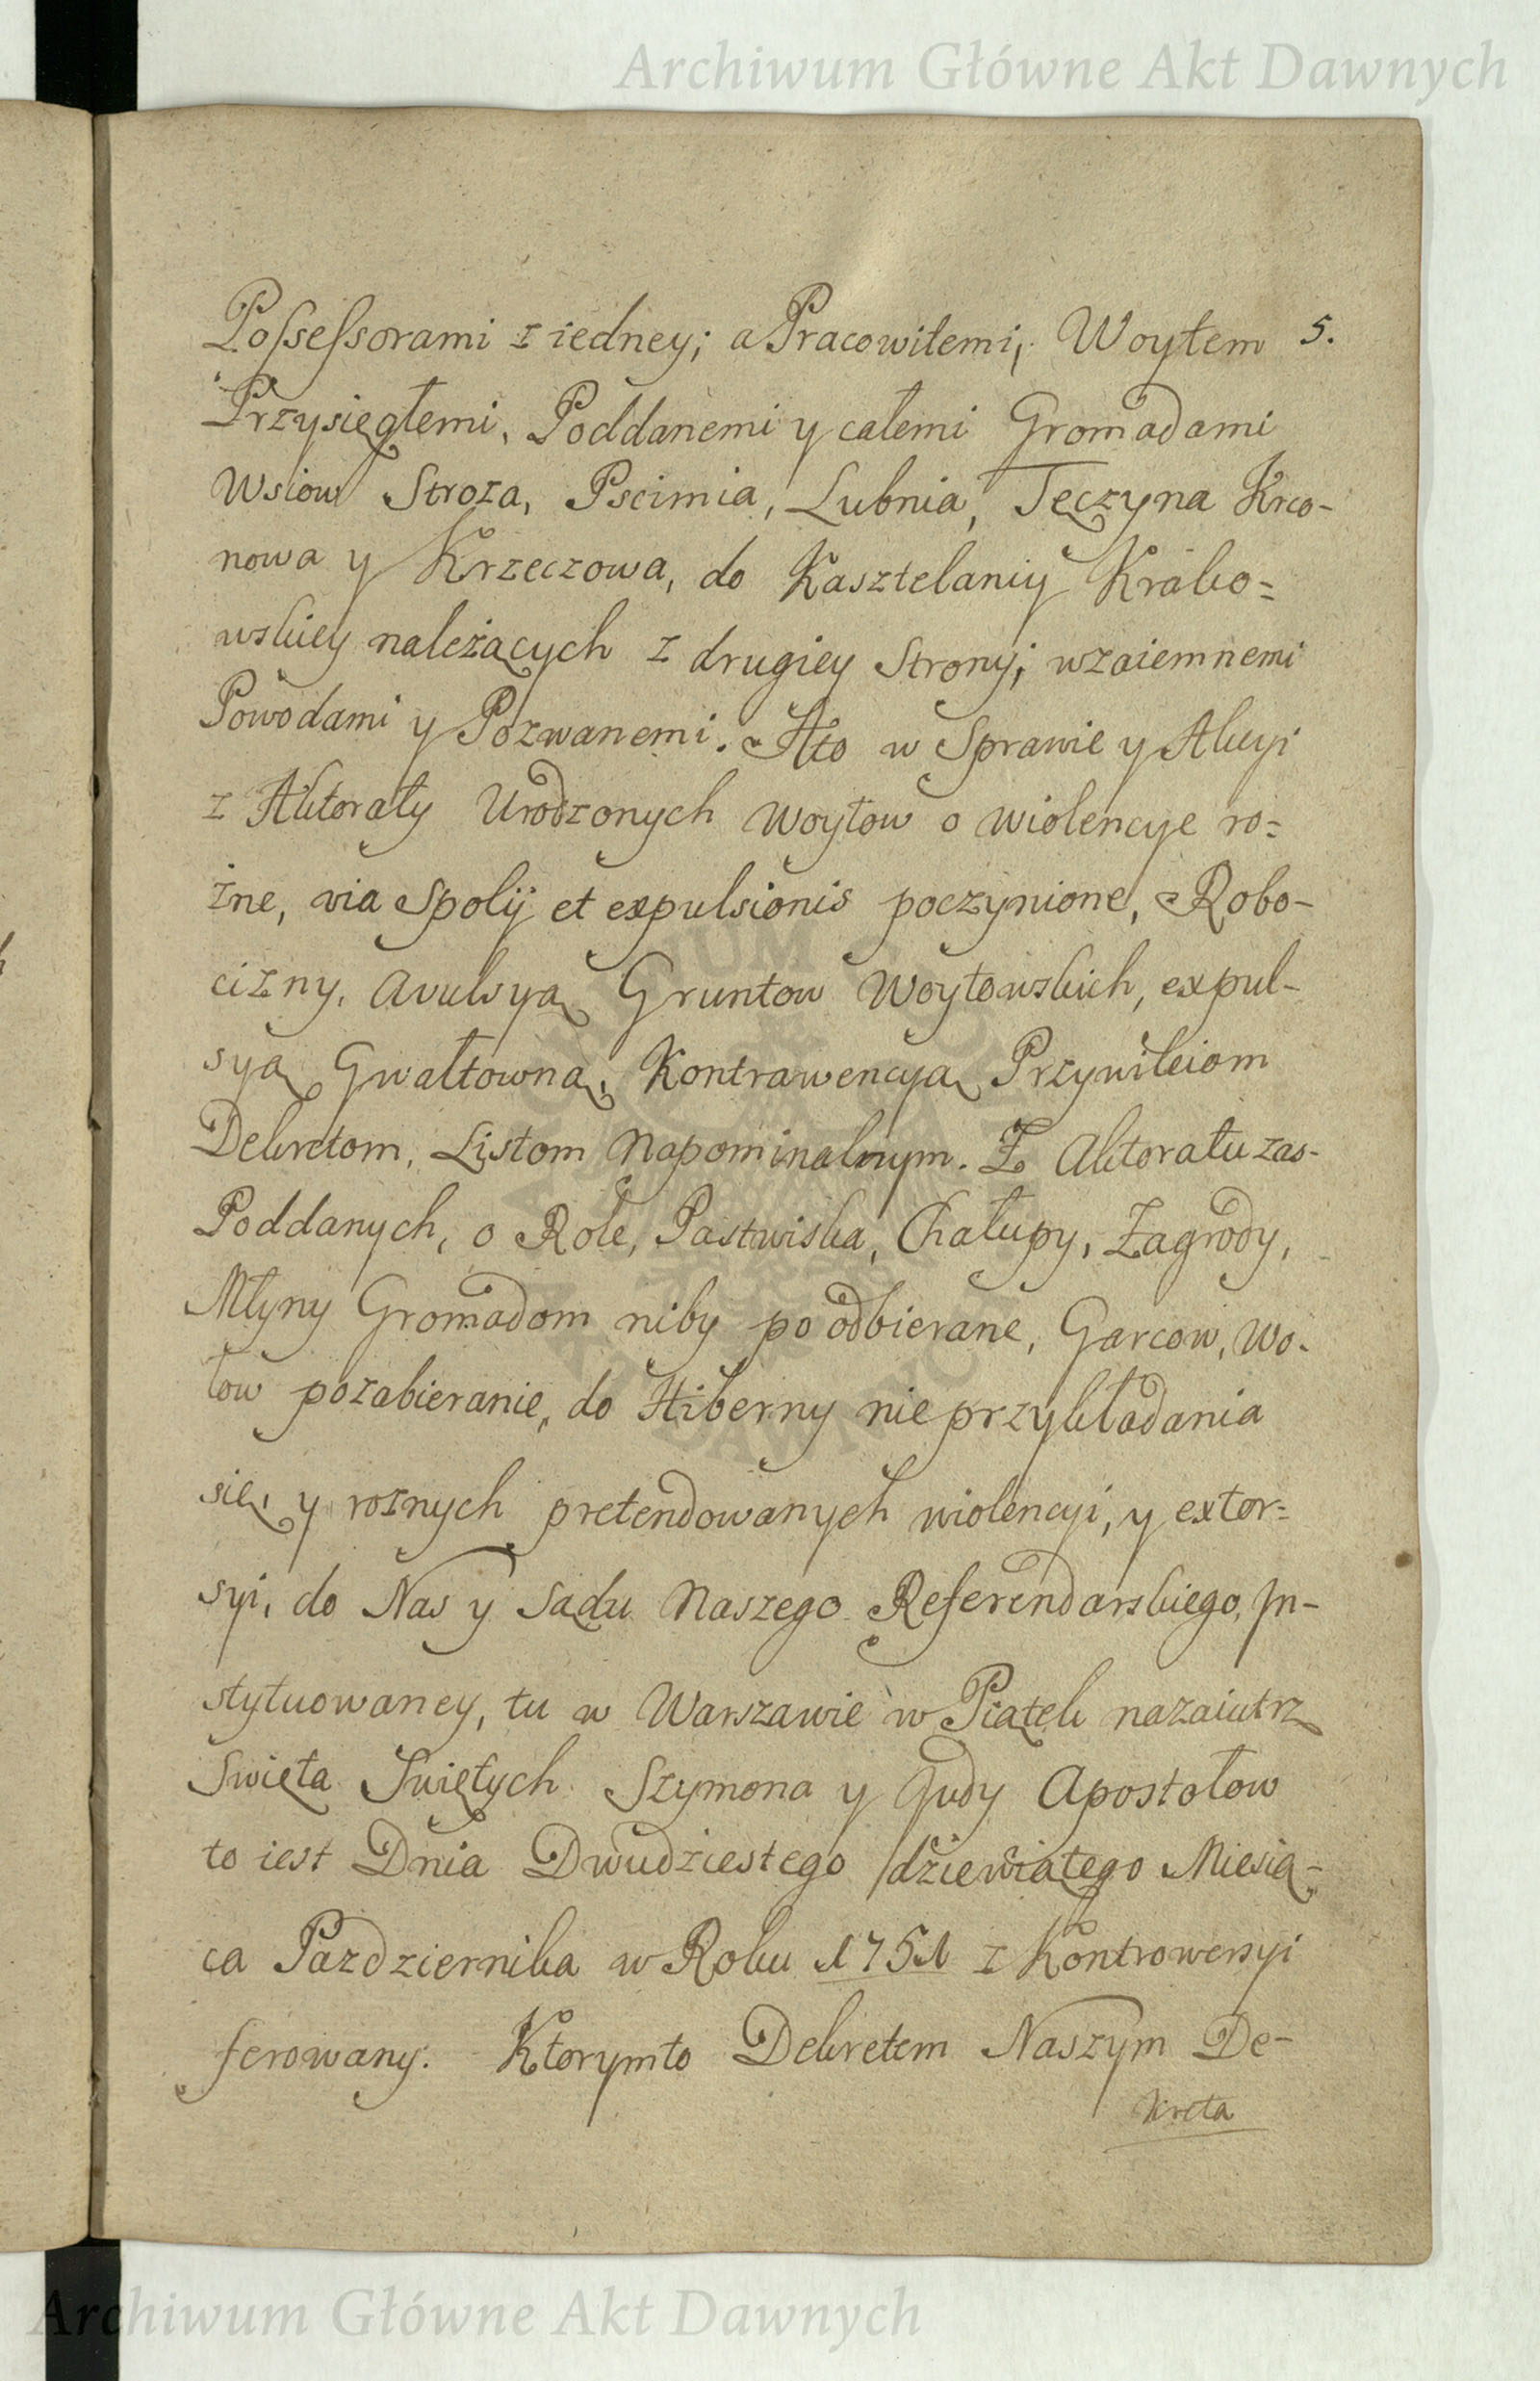 Archiwum Główne Akt Dawnych
Possessorami z iedney; a Pracowitemi, Woytem 5.
Przysięgłemi, Poddanemi y całemi Gromadami
Wsiow Stroza, Pscimia, Lubnia, Tęczyna Krco-
nowa y Krzeczowa, do Kasztelaniy Krako=
wskiey należących z drugiey Strony; wzaiemnemi
Powodami y Pozwanemi. A to w Sprawie y Akcyi
z Aktoraty Urodzonych Woytow o wiolencye ro=
żne, via Spolij et expulsionis poczynione, Robo-
cizny, Avulsyą Gruntow Woytowskich, expul-
syą Gwałtowną, Kontrawencyą Przywileiom
Dekretom, Listom Napominalnym. Z Aktoratu zas-
Poddanych, o Role, Pastwiska, Chałupy, Zagrody,
Młyny Gromadom niby po odbierane, Garcow, Wo-
łow pozabieranie, do Hiberny nie przykładania
się, y roznych pretendowanych wiolencyi, y extor=
syi, do Nas y Sądu Naszego Referendarskiego, In-
stytuowaney, tu w Warszawie w Piątek nazaiutrz
Swięta Swiętych Szymona y Judy Apostołow
to iest Dnia Dwudziestego dziewiątego Miesią-
ca Pazdziernika w Roku 1751 z Kontrowersyi
ferowany. Ktorymto Dekretem Naszym De-
kreta
Archiwum Główne Akt Dawnych